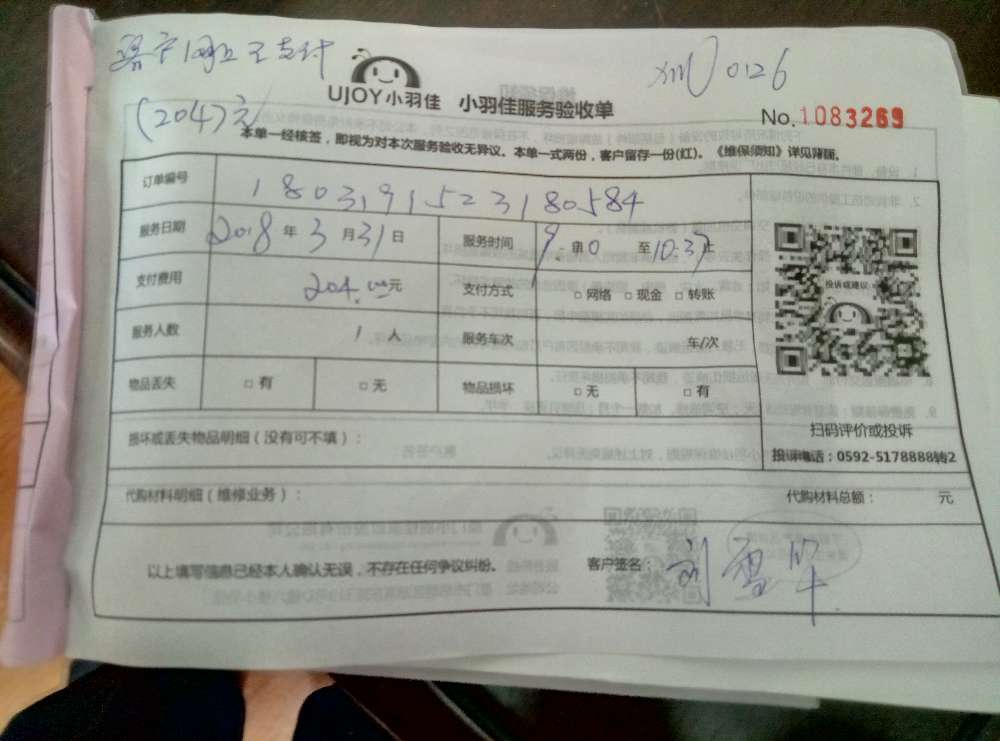 客户网上支付
0126
(204)元
UJOY小羽佳 小羽佳服务验收单
No.1083269
本单一经核签，即视为对本次服务验收无异议。本单一式两份，客户留存一份(红)。《维保须知》详见背面。
订单编号 1803191523180584
服务日期 2018 年 3 月 31 日 服务时间 至 10:37 止
支付费用 204.00元 支付方式 □ 网络 □ 现金 □ 转账
投诉或建议
服务人数 1 人 服务车次 车/次
物品丢失 □ 有 □ 无 物品损坏 □ 无 □ 有
扫码评价或投诉
损坏或丢失物品明细（没有可不填）：
投诉电话：0592-5178888转2
代购材料明细（维修业务）： 代购材料总额： 元
以上填写信息已经本人确认无误，不存在任何争议纠纷。 客户签名： 刘雪华